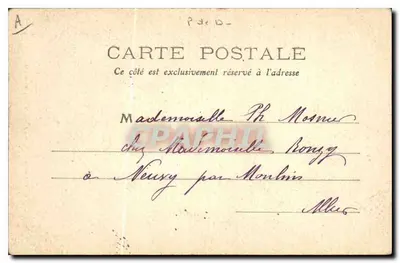 A
P de D-
CARTE POSTALE
Ce côté est exclusivement réservé à l'adresse
Mademoiselle Ph Mosnier
chez Mademoiselle Rongy
à Neuvy par Moulins
Allier